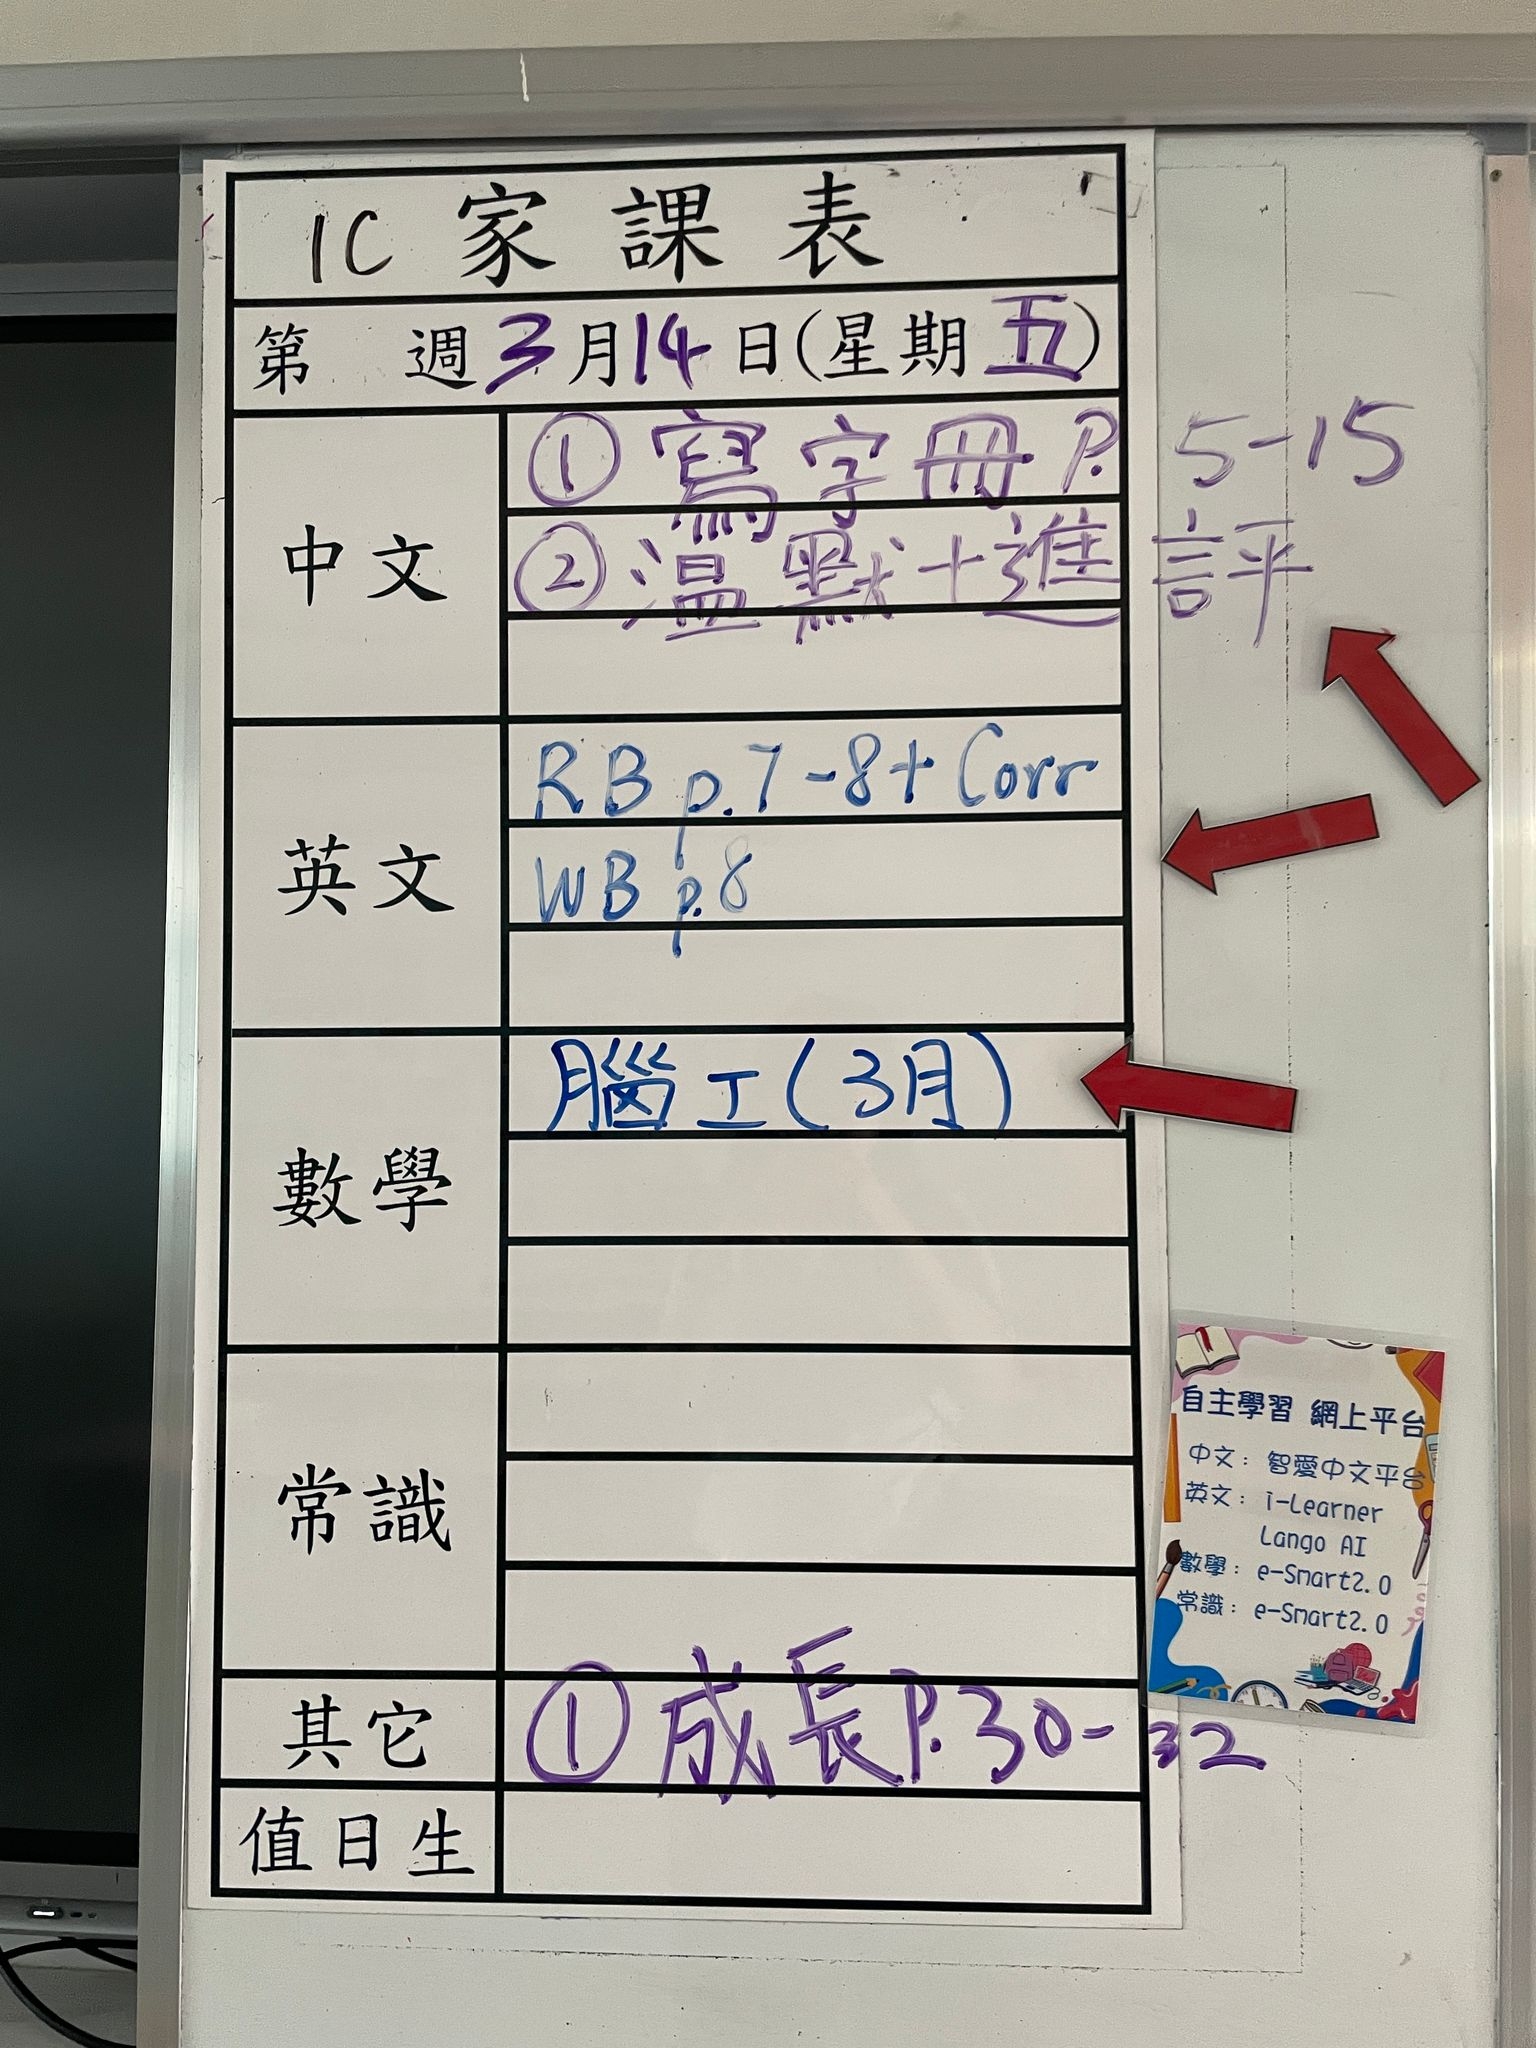 1C 家課表
第 週 3月14日(星期五)
中文
① 寫字冊 P. 5-15
② 溫默+進評
英文
RB p.7-8+Corr
WB p.8
數學
腦工(3月)
常識
其它
① 成長P.30-32
值日生
自主學習 網上平台
中文: 智愛中文平台
英文: i-Learner
Lango AI
數學: e-Smart2.0
常識: e-Smart2.0